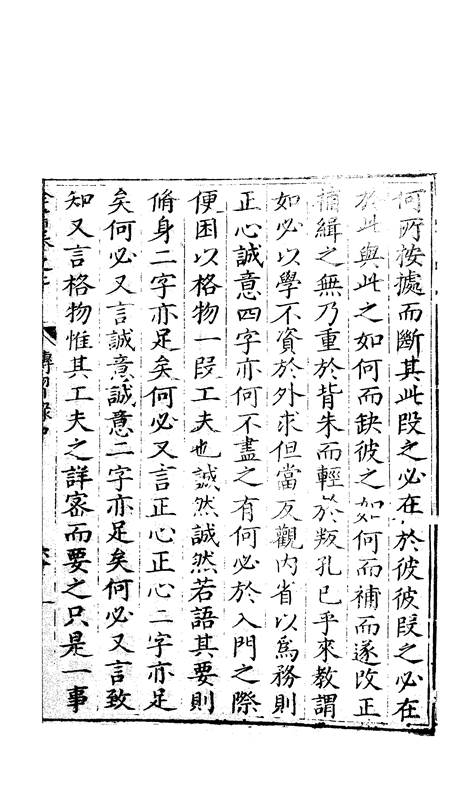 何所按據而斷其此段之必在於彼彼段之必在
於此與此之如何而缺彼之如何而補而遂改正
補緝之無乃重於背朱而輕於叛孔已乎來教謂
如必以學不資於外求但當反觀內省以爲務則
正心誠意四字亦何不盡之有何必於入門之際
便困以格物一段工夫也誠然誠然若語其要則
脩身二字亦足矣何必又言正心正心二字亦足
矣何必又言誠意誠意二字亦足矣何必又言致
知又言格物惟其工夫之詳密而要之只是一事
傳習錄中